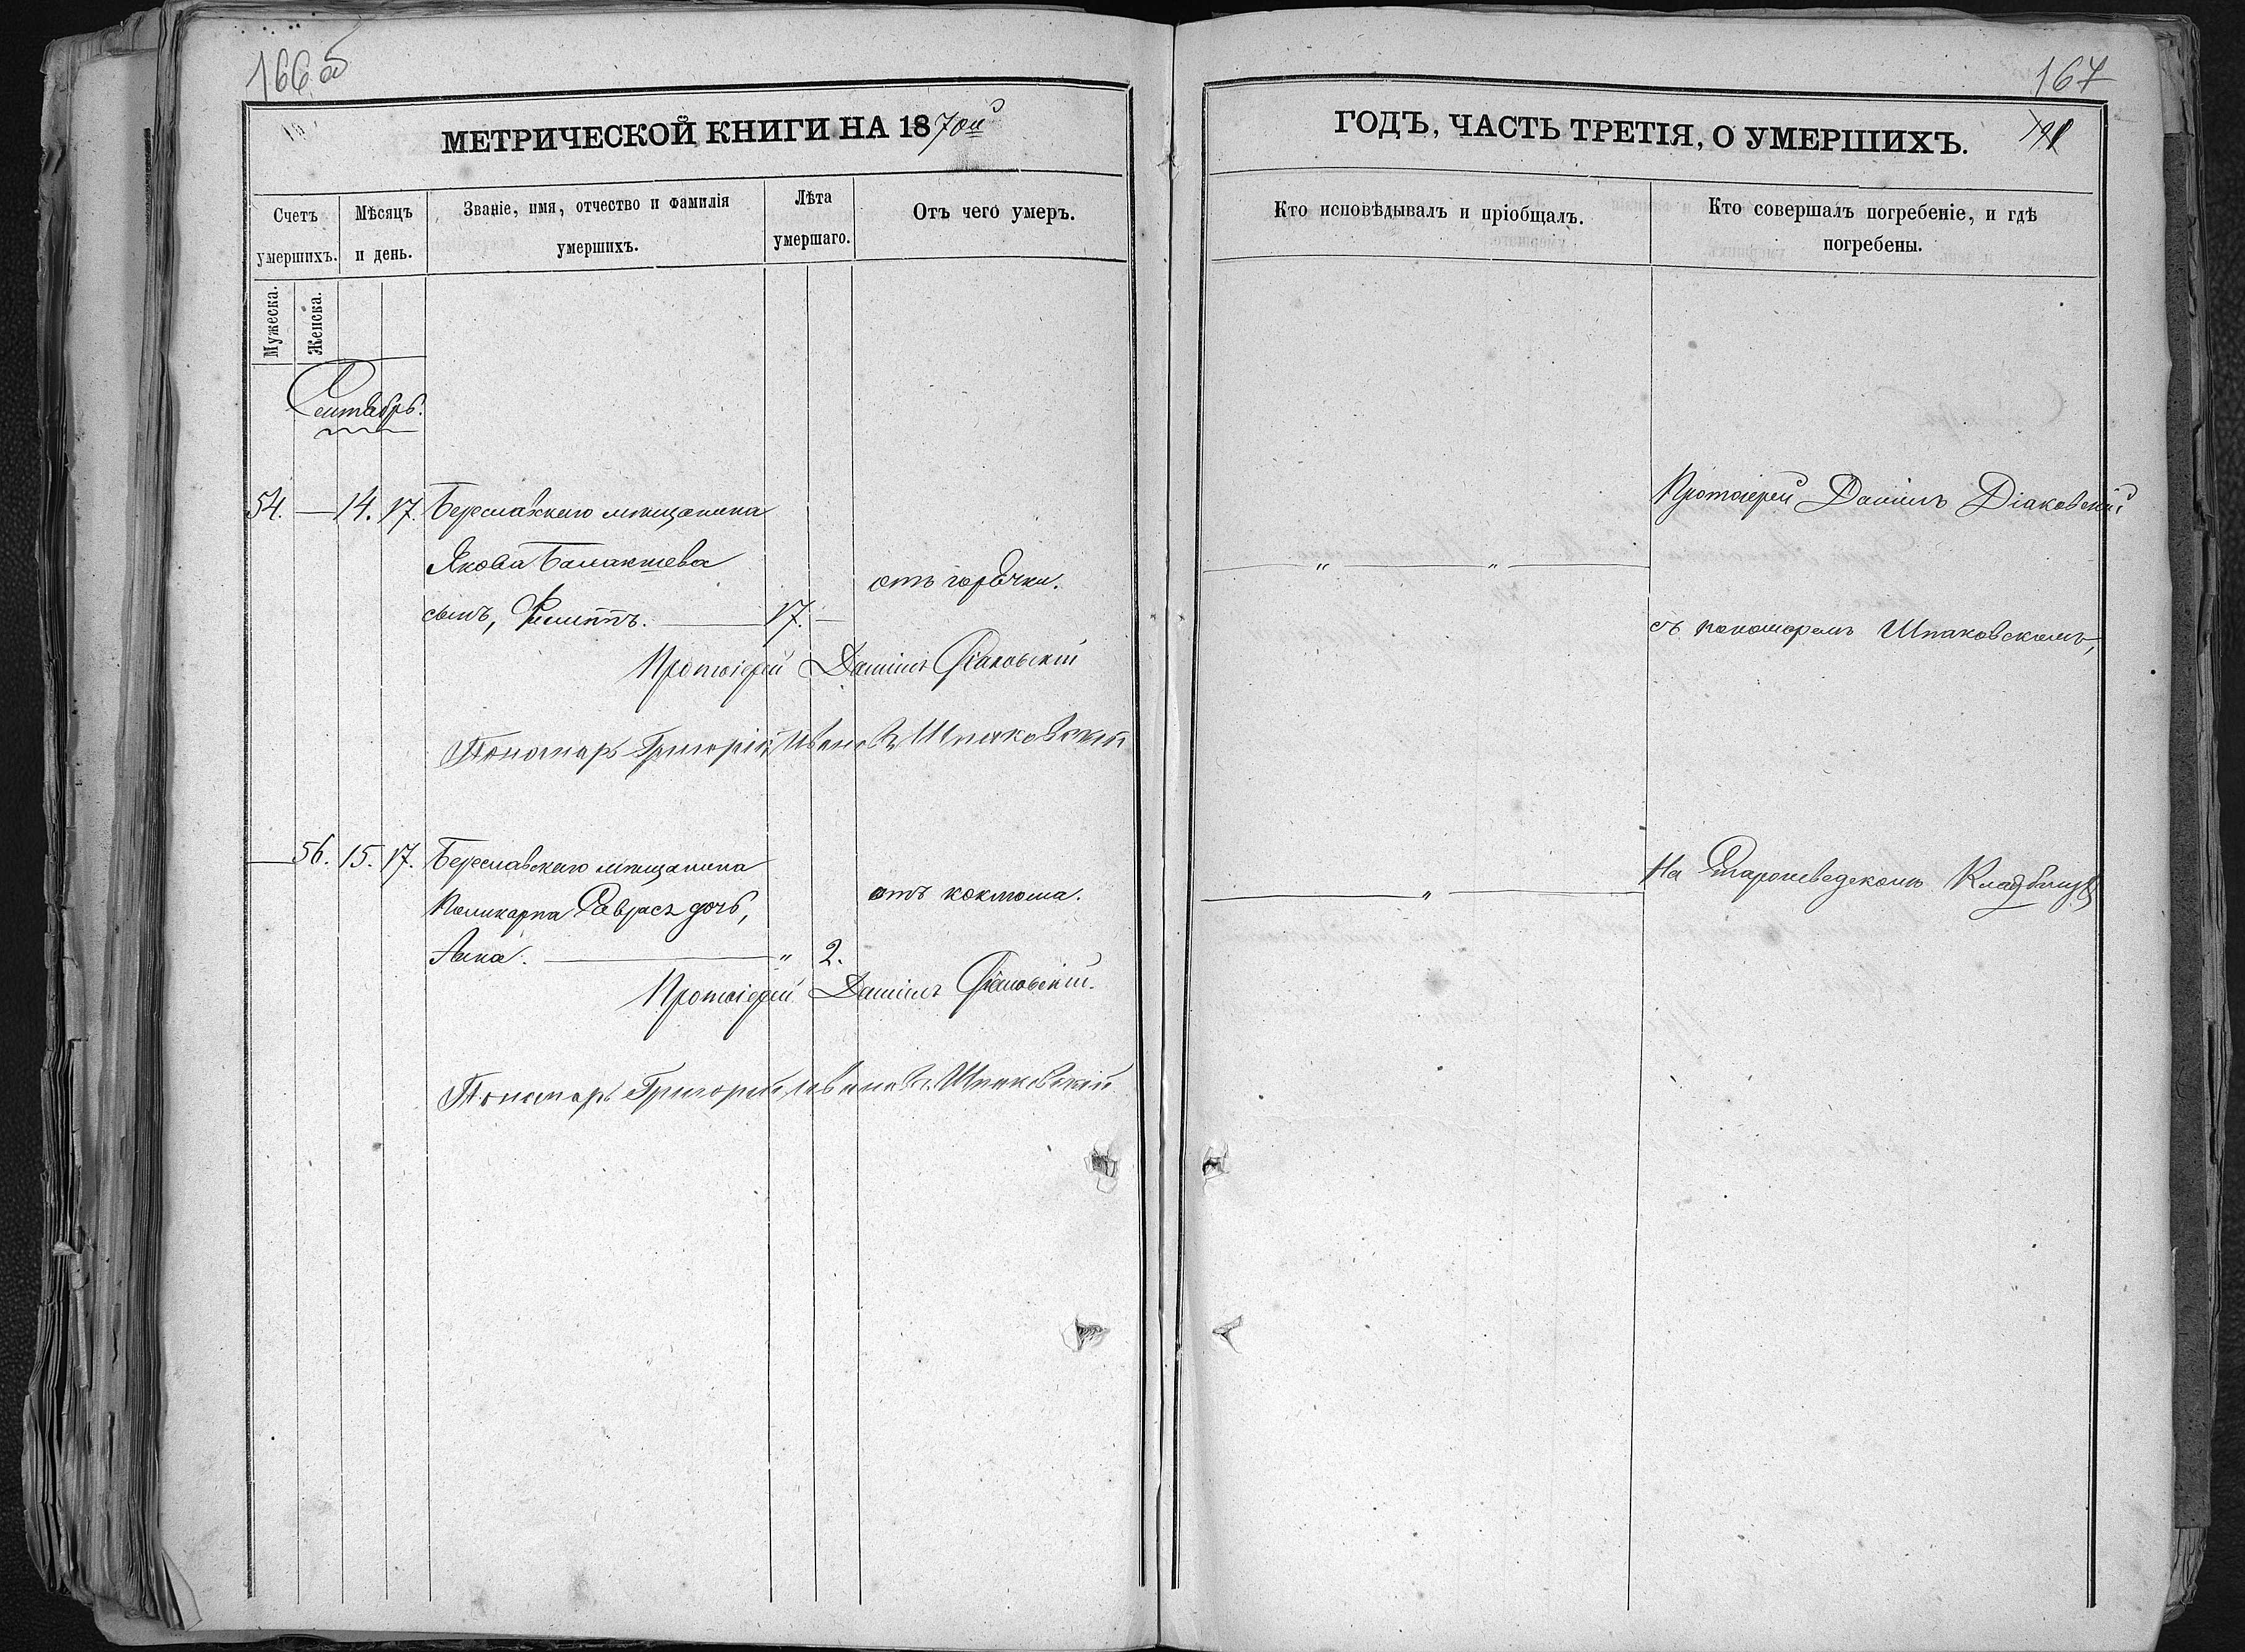 166 об
МЕТРИЧЕСКОЙ КНИГИ НА 1870й
Счетъ умершихъ.
Мѣсяцъ и день.
Званіе, имя, отчество и фамилія умершихъ.
Лѣта умершаго.
Отъ чего умеръ.
Мужеска.
Женска.
Сентябрь.
54. — 14. 17. Береславскаго мѣщанина
Якова
сынъ, Филиппъ. — 17. —
отъ горячки.
Протоіерей Даніилъ Діаковскій
Пономарь Григорій Ивановъ Шпаковскій
— 56. 15. 17. Береславскаго мѣщанина
Поликарпа дочь,
Анна. — " 2.
отъ коклюша.
Протоіерей Даніилъ Діаковскій.
Пономарь Григорій Ивановъ Шпаковскій
167
ГОДЪ, ЧАСТЬ ТРЕТІЯ, О УМЕРШИХЪ.
Кто исповѣдывалъ и пріобщалъ.
Кто совершалъ погребеніе, и гдѣ
погребены.
Протоіерей Даніилъ Діаковскій
— " — " —
съ пономаремъ Шпаковскимъ,
— " —
На Старошведскомъ Кладбищѣ